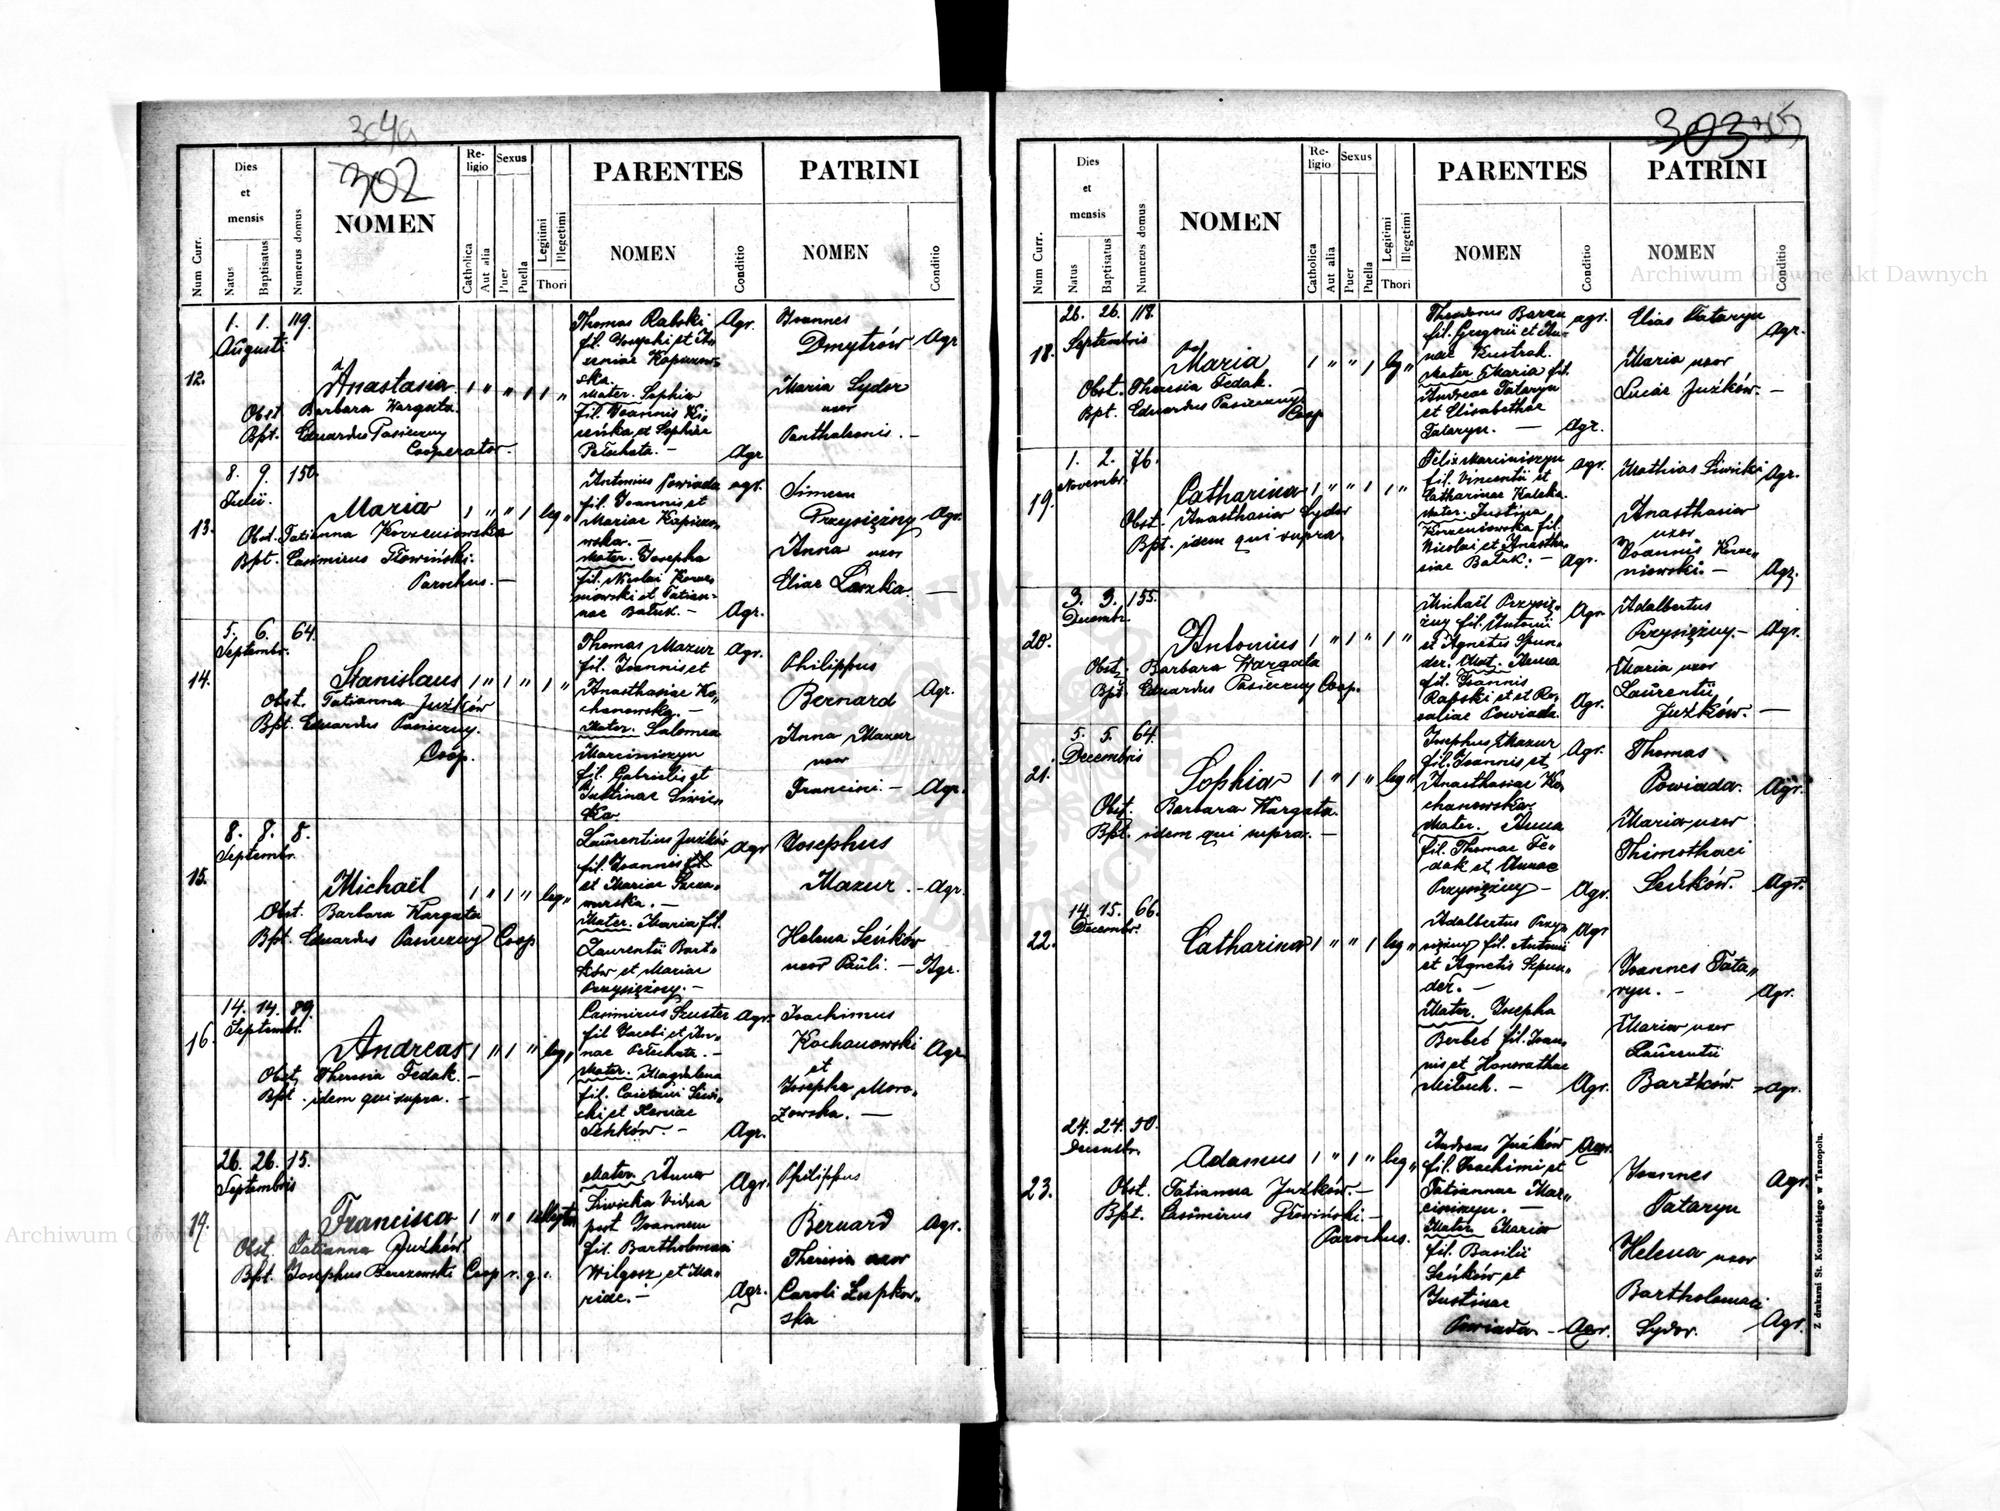 304a
302
Num Curr.
Dies
et
mensis
Natus
Baptisatus
Numerus domus
NOMEN
Religio
Catholica
Aut alia
Sexus
Puer
Puella
Legitimi
Illegetimi
Thori
PARENTES
NOMEN
Conditio
PATRINI
NOMEN
Conditio
12.
1. 1. 119.
Augusti
Anastasia 1 " " 1 1 "
Obst. Barbara Kargata.
Bpt. Eduardus Pasieczny
Cooperator.
Thomas Rabski Agr.
fil. Josephi et
Kapuzow-
ska.
Mater. Sophia
fil. Joannis
et Sophiae
Petuchata. — Agr
Joannes
Dmytrów Agr
Maria Sydor
uxor
Panthaleonis. —
13.
8. 9. 150.
Julii.
Maria 1 " " 1 leg "
Obst. Tatianna Korzeniowska
Bpt. Casimirus Głowiński.
Parochus. —
Antonius Powiada agr.
fil. Joannis et
Mariae
wska. —
Mater. Josepha
fil. Nicolai Korze-
niowski et Tatian-
nae Batuk. — Agr.
Simeon
Przysiężny Agr.
Anna uxor
Eliae Laszka —
14.
5. 6. 64.
Septembr.
Stanislaus 1 " 1 " 1 "
Obst. Tatianna Juzków
Bpt. Eduardus Pasieczny.
Coop.
Thomas Mazur Agr.
fil. Joannis et
Anasthasiae Ko-
chanowska. —
Mater. Salomea
Marciniszyn
fil. Gabrielis et
Justinae Siwic-
ka.
Philippus
Bernard Agr.
Anna Mazur
uxor
Francisci. — Agr.
15.
8. 8. 8.
Septembr.
Michaël 1 " 1 " leg "
Obst. Barbara Kargata
Bpt. Eduardus Pasieczny Coop
Laurentius Juzków Agr
fil. Joannis
et Mariae
Mater. Maria fil.
Laurentii Bart-
ków et Mariae
Przysiężny. —
Josephus
Mazur. — Agr.
Helena Seńków
uxor Pauli. — Agr.
16.
14. 14. 89.
Septembr.
Andreas 1 " 1 " leg "
Obst. Theresia Fedak. —
Bpt. idem qui supra. —
Casimirus Szuster Agr.
fil. Jacobi et An-
nae Petuchata. —
Mater. Magdalena
fil. Caietani Siwi-
cki et Xeniae
Seńków. — Agr.
Joachimus
Kochanowski Agr
et
Josepha Moro-
zowska. —
17.
26. 26. 15.
Septembris
Francisca 1 " "
Obst. Tatianna Juzków.
Bpt. Josephus Berezowski Coop r. g.
Mater. Anna Agr.
Siwicka vidua
post Joannem
fil. Bartholomaei
Wilgosz et Ma-
riae. — Agr.
Philippus
Bernard Agr.
Theresia uxor
Caroli Łupkow-
ska
303
Num Curr.
Dies
et
mensis
Natus
Baptisatus
Numerus domus
NOMEN
Religio
Catholica
Aut alia
Sexus
Puer
Puella
Legitimi
Illegetimi
Thori
PARENTES
NOMEN
Conditio
PATRINI
NOMEN
Conditio
18.
26. 26. 118.
Septembris
Maria 1 " " 1 leg "
Obst. Theresia Fedak.
Bpt. Eduardus Pasieczny
Coop
Theodorus agr.
fil. Gregorii et An-
nae Kustrak.
Mater Maria fil.
Andreae Tataryn
et Elisabethae
Tataryn. — Agr.
Elias Tataryn
Agr.
Maria uxor
Lucae Juzków. —
19.
1. 2. 76.
Novembr.
Catharina 1 " " 1 1 "
Obst. Anasthasia Sydor
Bpt. idem qui supra.
Felix Marciniszyn agr.
fil. Vincentii et
Catharinae
Mater. Justina
Korzeniowska fil.
Nicolai et Anastha-
siae Batuk. — Agr.
Mathias Siwicki Agr.
Anasthasia
uxor
Joannis Korze-
niowski. — Agr.
20.
3. 3. 155.
Decembr.
Antonius 1 " 1 " 1 "
Obst. Barbara Kargata
Bpt. Eduardus Pasieczny Coop.
Michaël Przysię- Agr.
żny fil. Antonii
et Agnetis Spun-
der. Mat. Anna
fil. Joannis
Rapski et et Ro- Agr.
saliae Powiada.
Adalbertus
Przysiężny. — Agr.
Maria uxor
Laurentii
Juzków. —
21.
5. 5. 64.
Decembris
Sophia 1 " 1 " leg "
Obst. Barbara Kargata.
Bpt. idem qui supra. —
Josephus Mazur Agr.
fil. Joannis et
Anasthasiae Ko-
chanowska.
Mater. Anna
fil. Thomae Fe-
dak et Annae
Przysiężny — Agr.
Thomas
Powiada. Agr.
Maria uxor
Thimothaei
Seńków. Agr.
22.
14. 15. 66.
Decembr.
Catharina 1 " " 1 leg "
Adalbertus Przy- Agr
siężny fil. Antonii
et Agnetis Szpun-
der. —
Mater. Josepha
Berbeć fil. Joan-
nis et Honorathae
— Agr.
Joannes Tata-
ryn. — Agr.
Maria uxor
Laurentii
Bartków. — Agr.
23.
24. 24. 50.
Decembr.
Adamus 1 " 1 " leg "
Obst. Tatianna Juzków. —
Bpt. Casimirus Głowiński. —
Parochus.
Andreas Juzków Agr.
fil. Joachimi et
Tatiannae Mar-
ciniszyn. —
Mater Maria
fil. Basilii
Seńków et
Justinae
Powiada — Agr.
Joannes Agr.
Tataryn
Helena uxor
Bartholomaei
Sydor. Agr.
Z drukarni St. Kossowskiego w Tarnopolu.
Archiwum Główne Akt Dawnych
Archiwum Główne Akt Dawnych